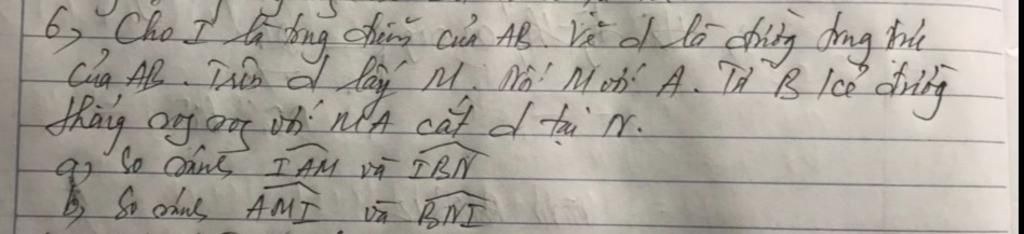 6, Cho I là trung điểm của AB. Vẽ d là đường trung trực
của AB. Trên d lấy M. Nối M với A. Từ B kẻ đường
thẳng song song với MA cắt d tại N.
a, So sánh IAM và IBN
b, So sánh AMI và BNI